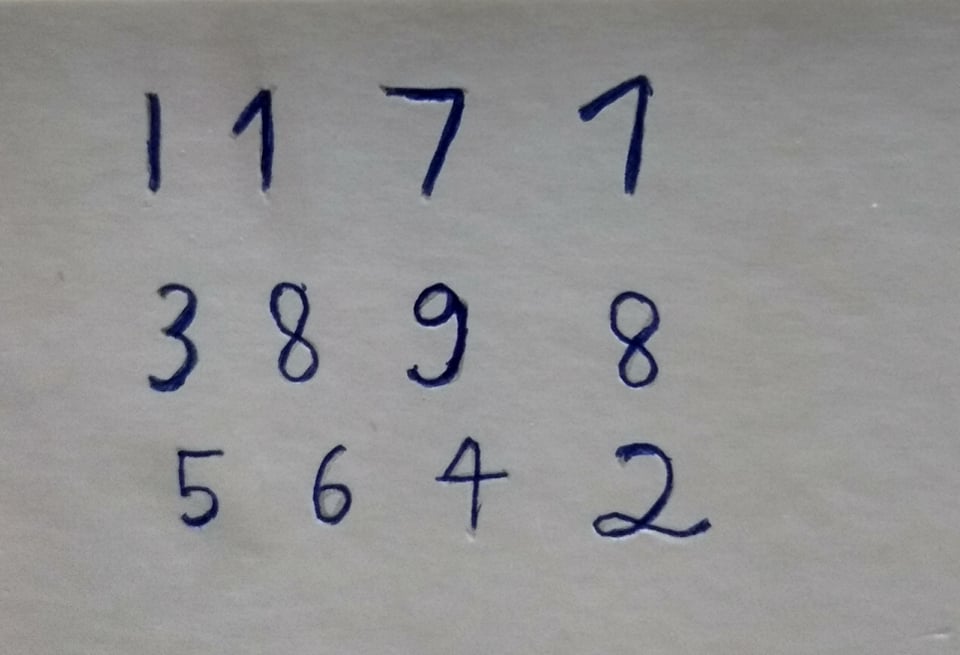 1 1 7 1
3 8 9 8
5 6 4 2